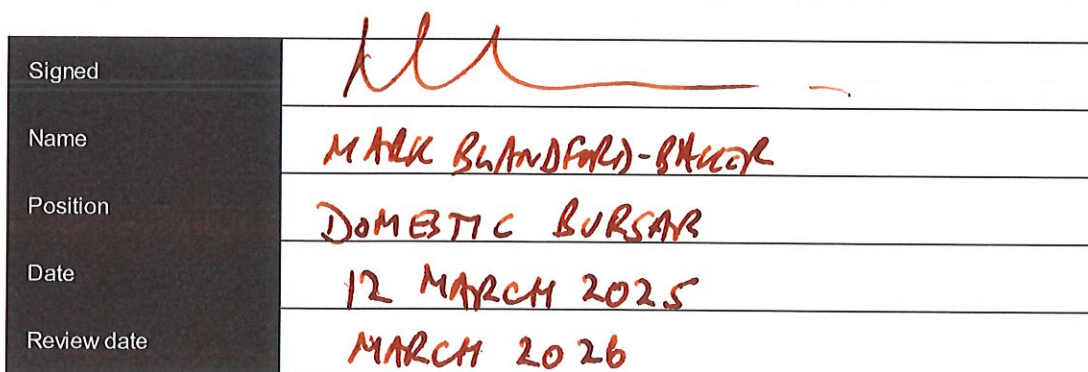 Signed
Name MARK BLANDFORD-BAKER
Position DOMESTIC BURSAR
Date 12 MARCH 2025
Review date MARCH 2026